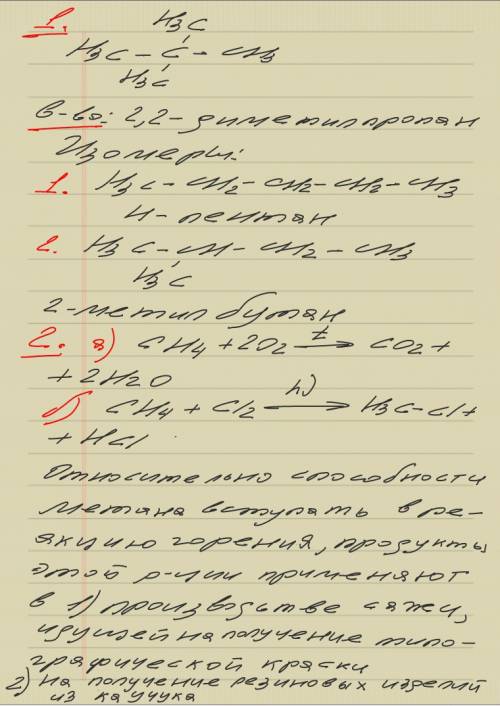 1. H3C
H3C - C - CH3
H3C
в-во: 2,2-диметилпропан
Изомеры:
1. H3C - CH2 - CH2 - CH2 - CH3
н-пентан
2. H3C - CH - CH2 - CH3
H3C
2-метилбутан
2. а) CH4 + 2O2 t→ CO2 +
+ 2H2O
б) CH4 + Cl2 hν→ H3C-Cl +
+ HCl
Относительно способности
метана вступать в ре-
акцию горения, продукты
этой р-ции применяют
в 1) производстве сажи,
идущей на получение типо-
графической краски
2) на получение резиновых изделий
из каучука